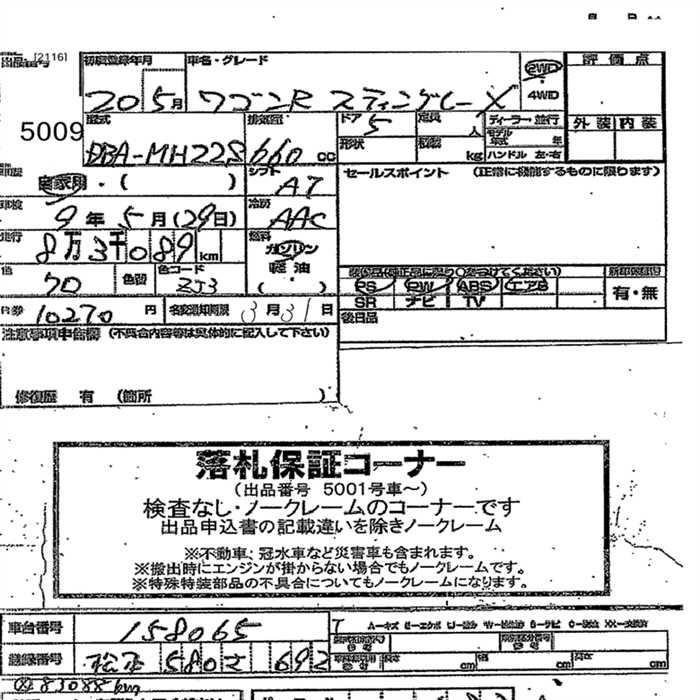 [2116]
出品番号 初度登録年月 車名・グレード 評価点
5009
20 5月 ワゴンR スティングレー X 2WD
4WD
型式 排気量 ドア 定員 ディーラー 並行 外装 内装
DBA-MH22S 660 cc 5 人 モデル年式 年
形状 積載 kg ハンドル 左・右
車歴 自家用・( ) シフト AT セールスポイント (正常に機能するものに限ります)
車検 9年 5月(29日) 冷房 AAC
走行 8万3千089km 燃料 ガソリン
軽油
( )
色 色替 色コード ZJ3
装備品(純正品に限り○をつけてください)
PS PW ABS エアB 有・無
SR ナビ TV
後日品
R券 10270 円 名変通知期限 3月31日
注意事項申告欄 (不具合内容等は具体的に記入して下さい)
修復歴 有 (箇所 )
落札保証コーナー
(出品番号 5001号車~)
検査なし・ノークレームのコーナーです
出品申込書の記載違いを除きノークレーム
※不動車、冠水車など災害車も含まれます。
※搬出時にエンジンが掛からない場合でもノークレームです。
※特殊特装部品の不具合についてもノークレームになります。
車台番号 158065
A-キズ E-エクボ U-凹み W-補修跡 S-サビ C-腐食 XX-交換済
登録番号 松本 580 さ 692
長さ cm 幅 cm 高さ cm
83088km